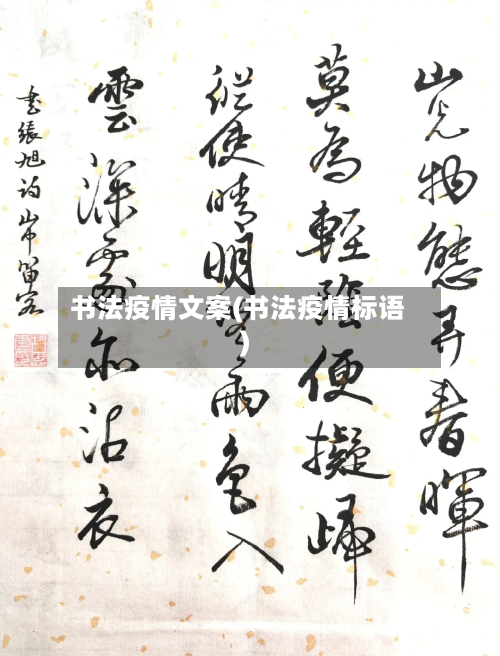 山光物態弄春暉
莫為輕陰便擬歸
縱使晴明無雨色入
雲深處亦沾衣
书張旭詩山中留客
书法疫情文案(书法疫情标语
)